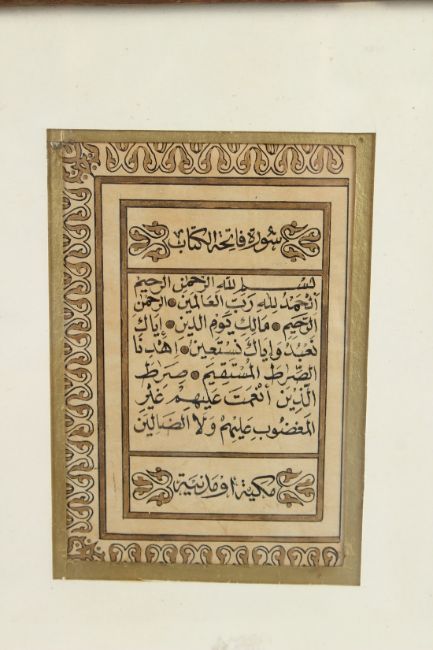 سورة فاتحة الكتاب
بسم الله الرحمن الرحيم
الحمد لله رب العالمين • الرحمن
الرحيم • مالك يوم الدين • إياك
نعبد وإياك نستعين • اهدنا
الصراط المستقيم • صراط
الذين أنعمت عليهم غير
المغضوب عليهم ولا الضالين
مكية او مدنية